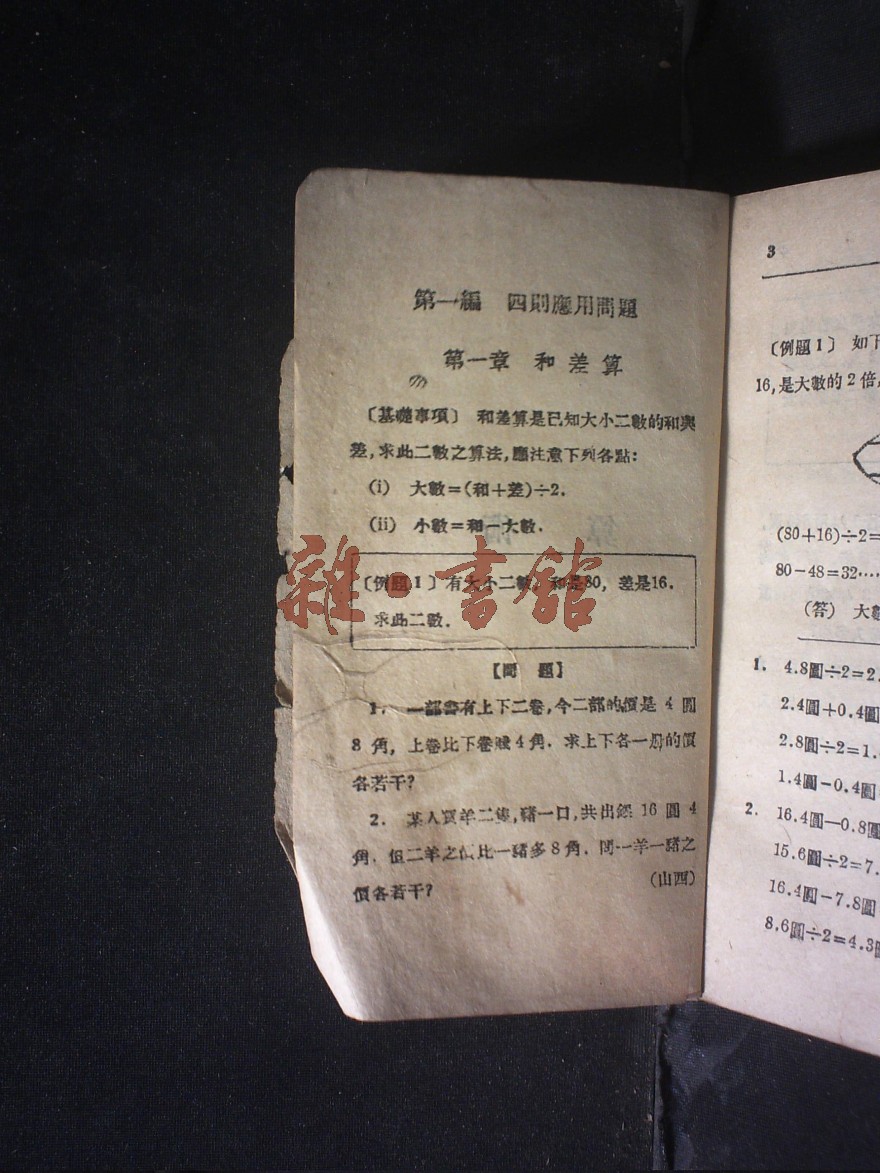 第一編 四則應用問題
第一章 和差算
〔基礎事項〕 和差算是已知大小二數的和與
差,求此二數之算法,應注意下列各點:
(i) 大數=(和+差)÷2.
(ii) 小數=和-大數.
〔例題1〕有大小二數,和是80, 差是16.
求此二數.
【問 題】
1. 一部書有上下二卷,今二部的價是 4 圓
8 角, 上卷比下卷賤4角. 求上下各一册的價
各若干?
2. 某人買羊二隻,豬一口,共出銀 16 圓 4
角. 但二羊之價比一豬多8角. 問一羊一豬之
價各若干? (山西)
3
〔例題1〕 如下
16,是大數的2倍
(80+16)÷2=
80-48=32……
(答) 大數
1. 4.8圓÷2=2.
2.4圓+0.4圓
2.8圓÷2=1.
1.4圓-0.4圓
2. 16.4圓-0.8圓
15.6圓÷2=7.
16.4圓-7.8圓
8.6圓÷2=4.3圓
雜·書館